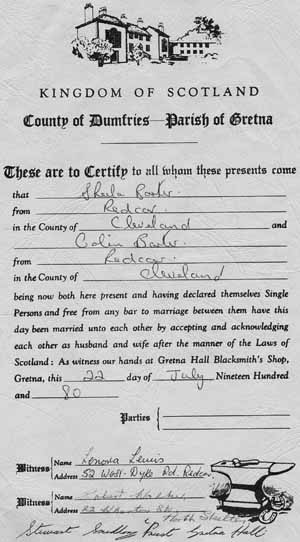 KINGDOM OF SCOTLAND
County of Dumfries—Parish of Gretna
These are to Certify to all whom these presents come
that Sheila
from Redcar.
in the County of Cleveland and
Colin
from Redcar.
in the County of Cleveland
being now both here present and having declared themselves Single
Persons and free from any bar to marriage between them have this
day been married unto each other by accepting and acknowledging
each other as husband and wife after the manner of the Laws of
Scotland: As witness our hands at Gretna Hall Blacksmith's Shop,
Gretna, this 22 day of July Nineteen Hundred
and 80
Parties
Witness Name Lenora Lewis
Address 52 West Dyke Rd. Redcar
Witness Name Robert
Address 82
North Shields
Stewart "Priest" Gretna Hall